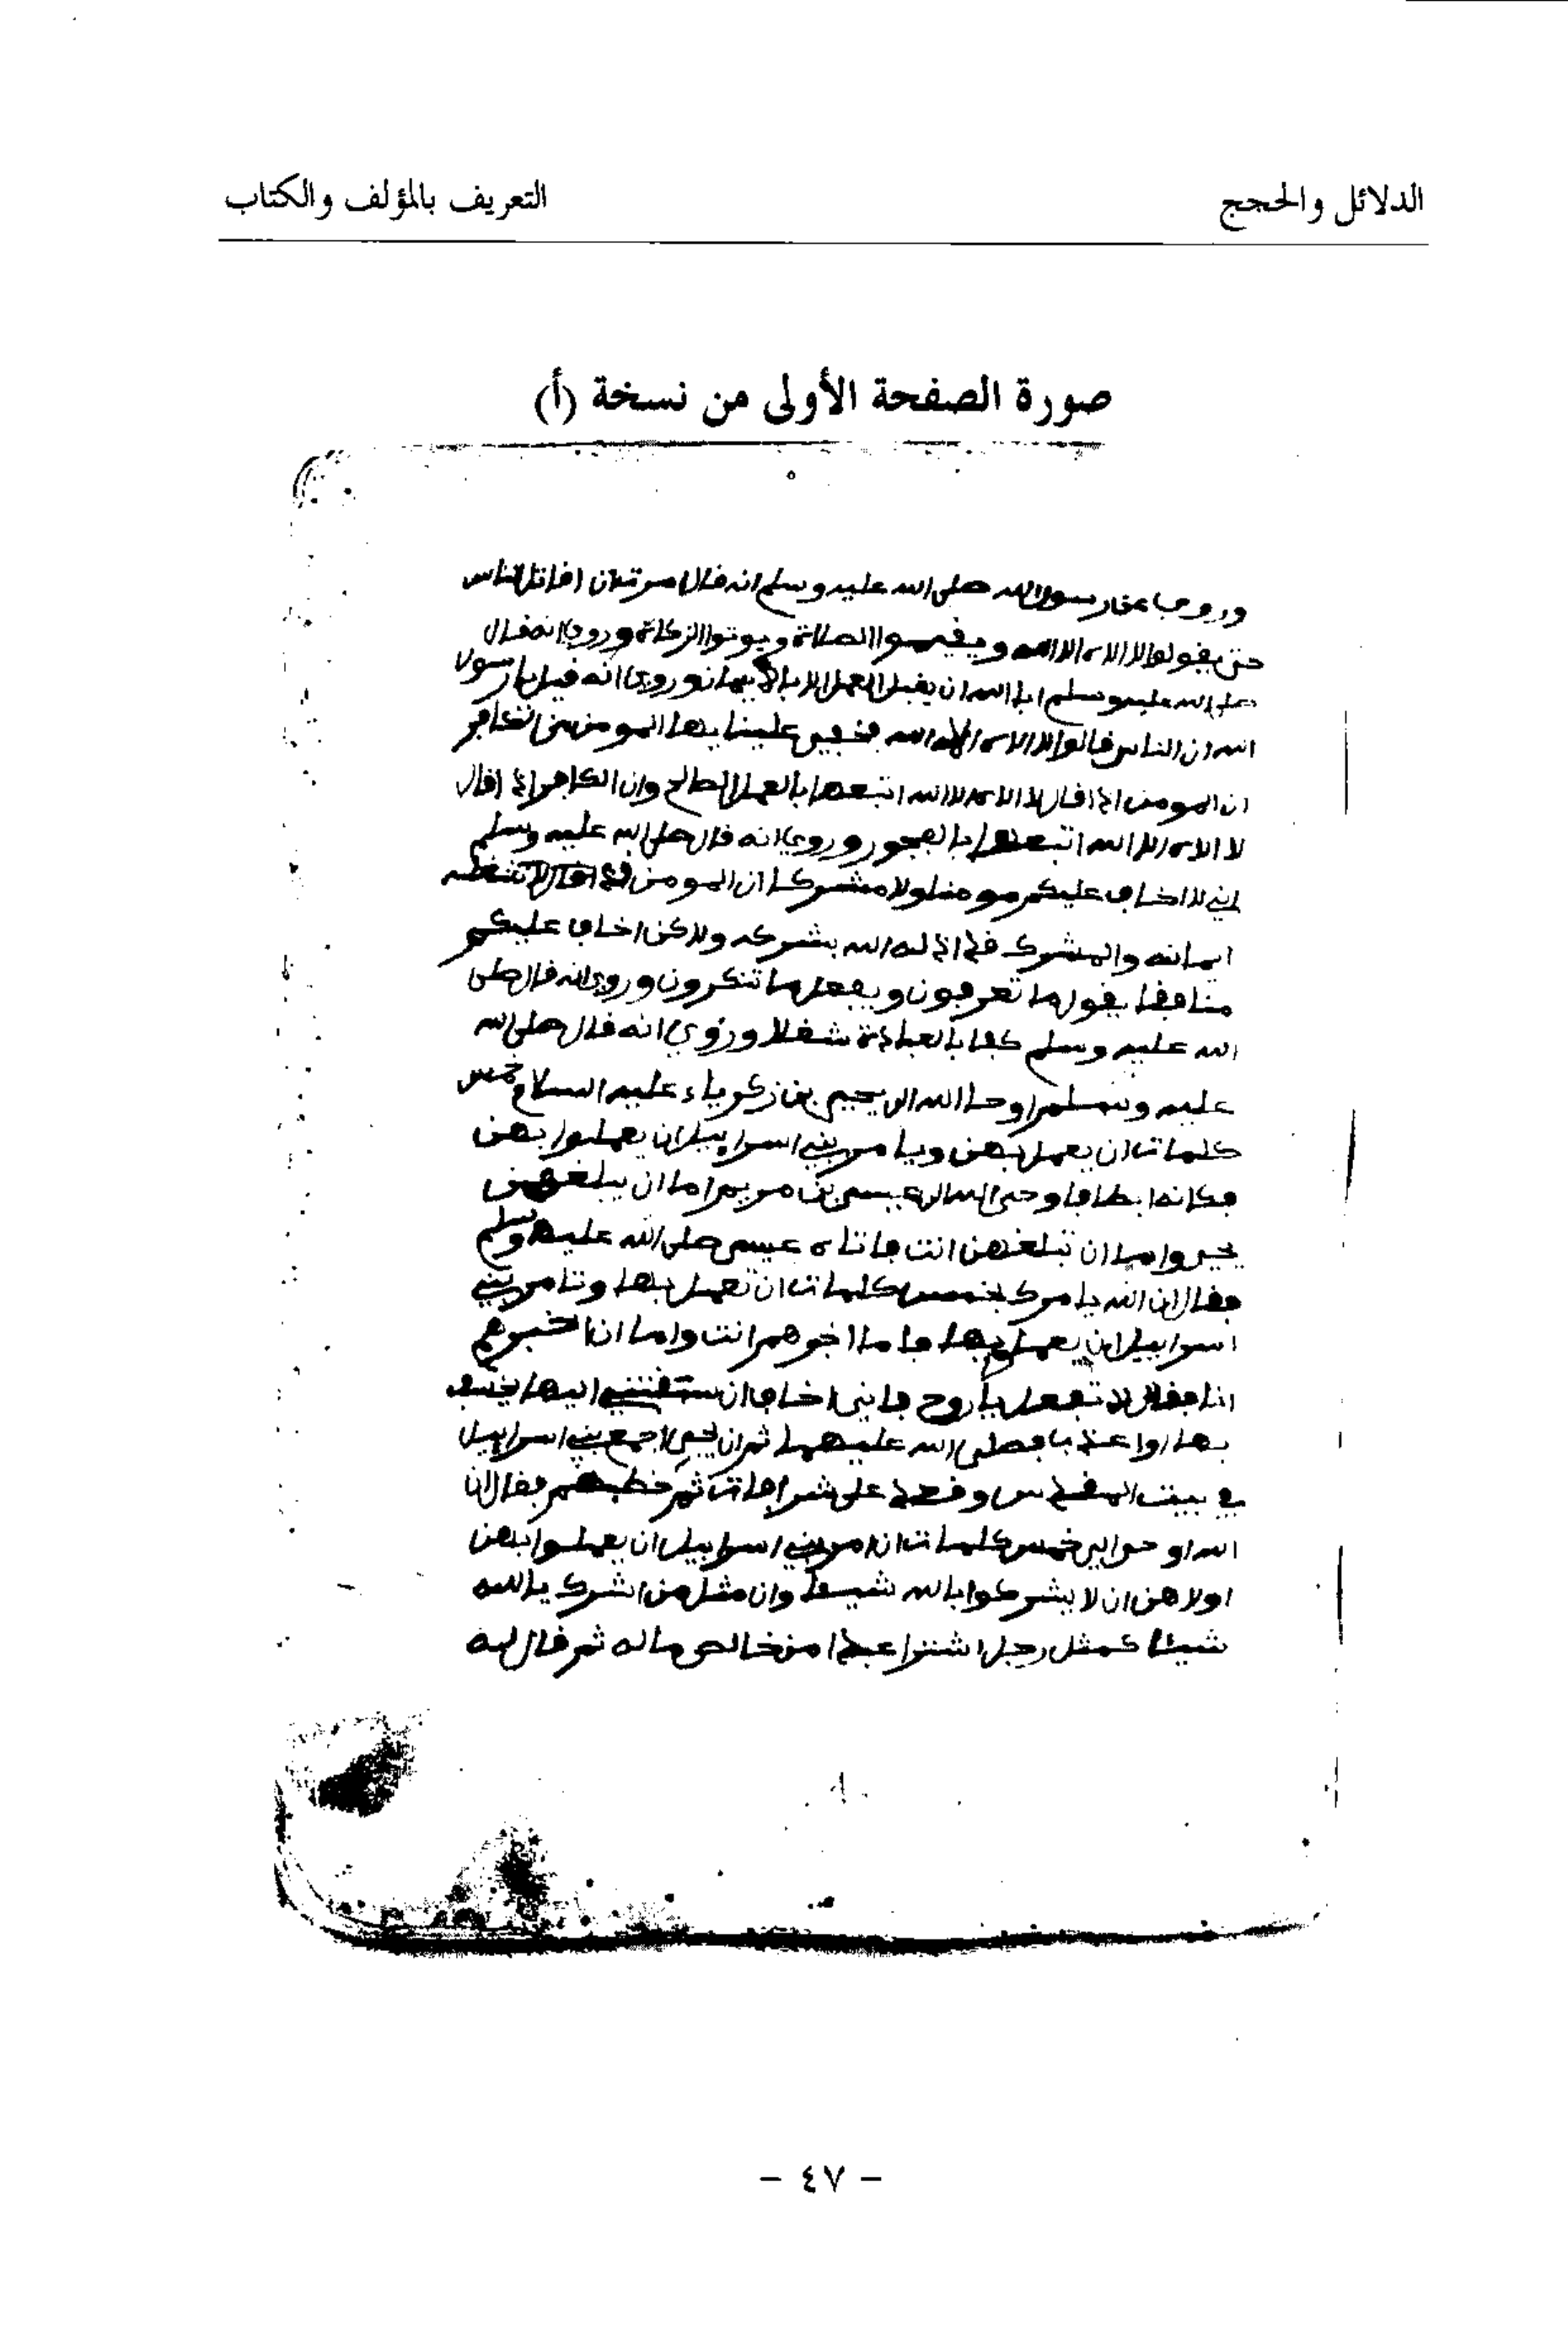 الدلائل والحجج
التعريف بالمؤلف والكتاب
صورة الصفحة الأولى من نسخة (أ)
وروي عن رسول الله صلى الله عليه وسلم انه قال امرت ان اقاتل الناس
حتى يقولوا لا الاه الا الله ويقيموا الصلاة ويوتوا الزكاة وروي انه قال
صلى الله عليه وسلم ابا الله ان يقبل العمل الا بالايمان وروي انه قيل يا رسول
الله ان الناس قالوا لا الاه الا الله المومن من الكافر
ان المومن اذا قال لا الاه الا الله اتبعها بالعمل الصالح وان الكافر اذا قال
لا الاه الا الله اتبعها بالفجور وروي انه قال صلى الله عليه وسلم
اني لا اخاف عليكم مومنا ولا مشركا ان المومن
ايمانه والمشرك قد اذله الله بشركه ولاكن اخاف عليكم
منافقا يقول ما تعرفون ويفعل ما تنكرون وروي انه قال صلى
الله عليه وسلم كفا بالعبادة شغلا وروي انه قال صلى الله
عليه وسلم اوحا الله الى يحيى بن زكرياء عليه السلام خمس
كلمات ان يعمل بهن ويامر بني اسراييل ان يعملوا بهن
فكانه ابطا فاوحى الله الى عيسى بن مريم اما ان يبلغهن
يحيى واما ان تبلغهن انت فاتاه عيسى صلى الله عليه وسلم
فقال ان الله يامرك بخمس كلمات ان تعمل بها وتامر بني
اسراييل ان يعمل بها فاما اخبرهم انت واما انا اخبرهم
انا فقال لا تفعل يا روح فاني اخاف ان سبقتني اليها يخسف
بها او اعذبا فصلى الله عليهما ثم ان يحيى اجمع بني اسراييل
في بيت المقدس وقعد على شرافات ثم خطبهم فقال ان
الله اوحى الي خمس كلمات ان امر بني اسراييل ان يعملوا بهن
اولاهن ان لا يشركوا بالله شيئا وان مثل من اشرك بالله
شيئا كمثل رجل اشترا عبدا من خالص ماله ثم قال له
- ٤٧ -